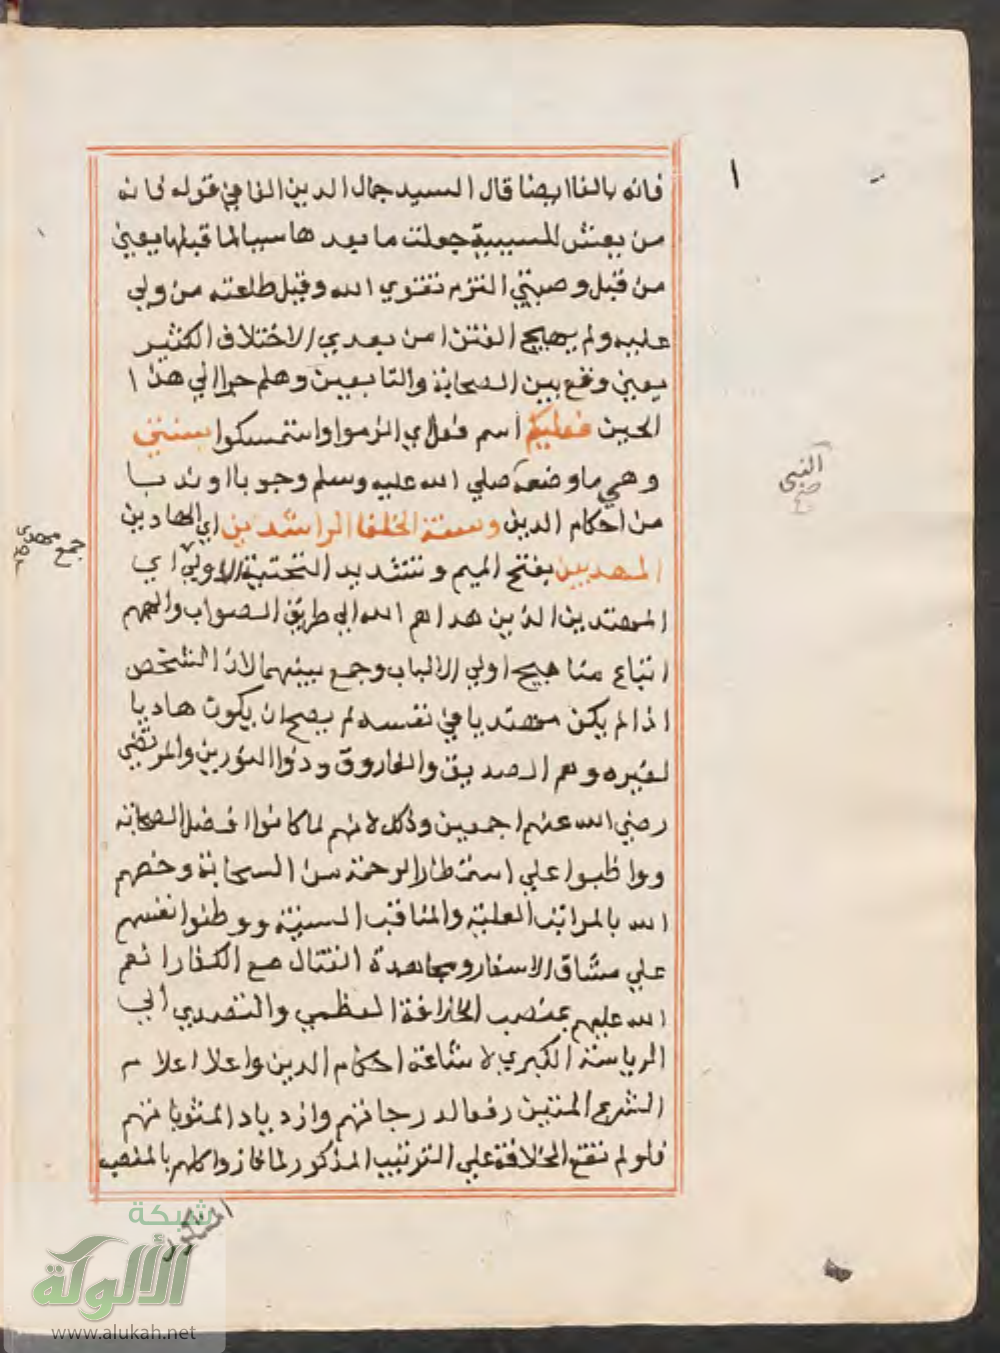 فانه بالفا ايضا قال السيد جمال الدين الفا في قوله فانه
من يعش للسببية جعلت ما بعدها سببا لما قبلها يعني
من قبل وصيتي التزم تقوي الله وقبل طلعته من ولي
عليه ولم يهيج الفتن امن بعدي الاختلاف الكثير
يعني وقع بين الصحابة والتابعين وهلم جرا الي هذا
الحين فعليكم اسم فعل اي الزموا واستمسكوا بسنتي
وهي ما وضعه صلي الله عليه وسلم وجوبا او ندبا
من احكام الدين وسنة الخلفا الراشدين اي الهادين
المهديين بفتح الميم وتشديد التحتية الاولي اي
المهتدين الذين هداهم الله الي طريق الصواب والهمهم
اتباع منا هيج اولي الالباب وجمع بينهما لان الشخص
اذا لم يكن مهتديا في نفسه لم يصح ان يكون هاديا
لغيره وهم الصديق والفاروق وذوا النورين والمرتضي
رضي الله عنهم اجمعين وذلك لانهم لما كانوا افضل الصحابة
وواظبوا علي استمطار الرحمة من السحابة وخصهم
الله بالمراتب العلية والمناقب السنية ووطنوا نفسهم
علي مشاق الاسفار ومجاهدة القتال مع الكفار انعم
الله عليهم بمنصب الخلافة العظمي والتصدي الي
الرياسة الكبري لاشاعة احكام الدين واعلا اعلام
الشرع المتين رفعا لدرجاتهم وازدياد المثوباتهم
فلو لم تقع الخلافة علي الترتيب المذكور لما فازوا كلهم بالمنصب
المذكور
جمع مهدي
النبي
صح
١
شبكة
الألوكة
www.alukah.net